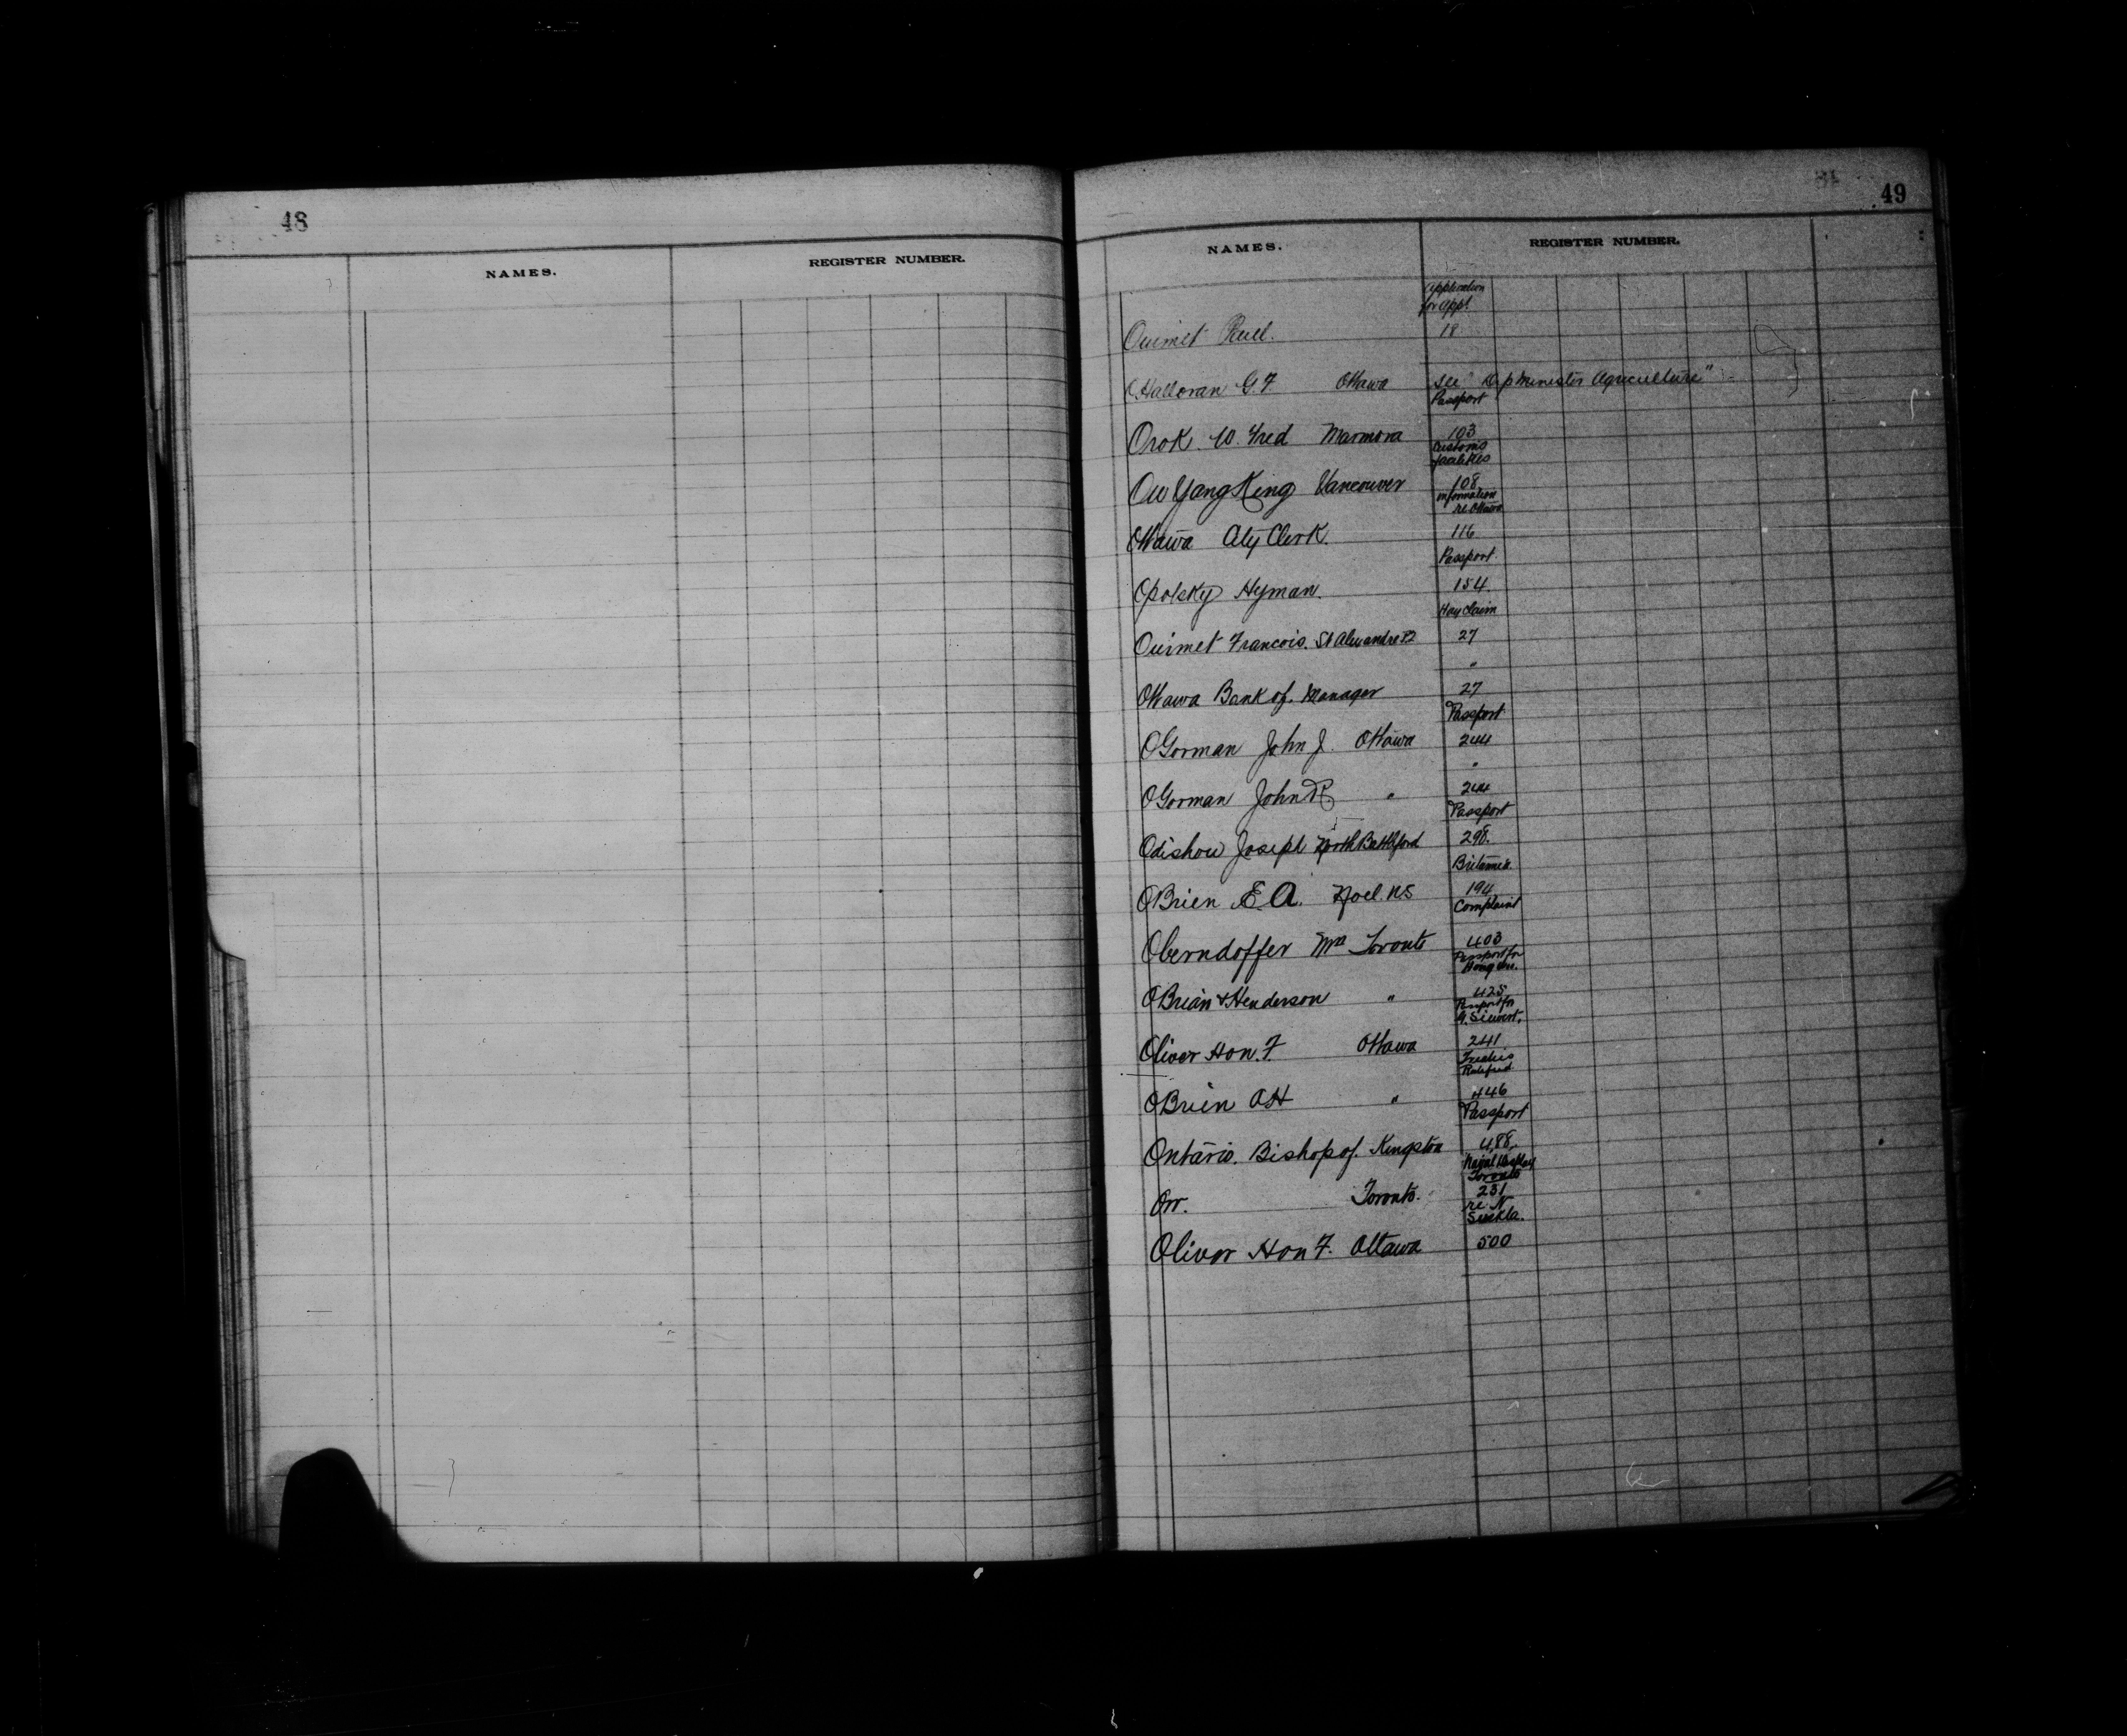 48
NAMES.
REGISTER NUMBER.
49
NAMES.
REGISTER NUMBER.
Application
for appt.
Ouimet 18
O'Halloran G. F. Ottawa see "Dep Minister Agriculture"
Passport
Orok W. Fred Marmora 103
Customs
facilities
Ou Yang King Vancouver 108
information
re Ottawa
Ottawa City Clerk. 116
Passport
Opolsky Hyman. 154
Hay claim
Ouimet Francois. St Alexandre PQ 27
"
Ottawa Bank of. Manager 27
Passport
OGorman John J. Ottawa 244
"
OGorman John R " 244
Passport
Odishow Joseph North Battleford 298.
Britannica
OBrien E. A. Noel. NS 194
Complaint
Oberndoffer Mrs Toronto 403
Passport for
OBrian & Henderson " 425
Passport for
G. Siewert.
Oliver Hon. F. Ottawa 241
OBrien AH " 446
Passport
Ontario. Bishop of. Kingston 488
Naval Display
Toronto
Orr. Toronto. 231
re N
Oliver Hon F. Ottawa 500